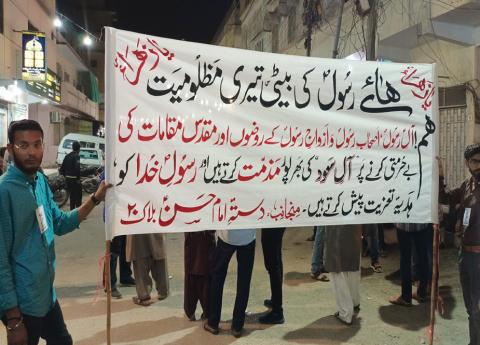 یا زہراؑ
یا زہراؑ
ہائے رسولؐ کی بیٹی تیری مظلومیت
ہم آل رسولؐ اصحاب رسولؐ و ازواج رسولؐ کے روضوں اور مقدس مقامات کی
بے حرمتی کرنے پر "آل سعود" کی بھرپور مذمت کرتے ہیں اور رسولؐ خدا کو
ہدیہ تعزیت پیش کرتے ہیں۔ منجانب: دستہ امام حسنؑ بلاک ۲۰